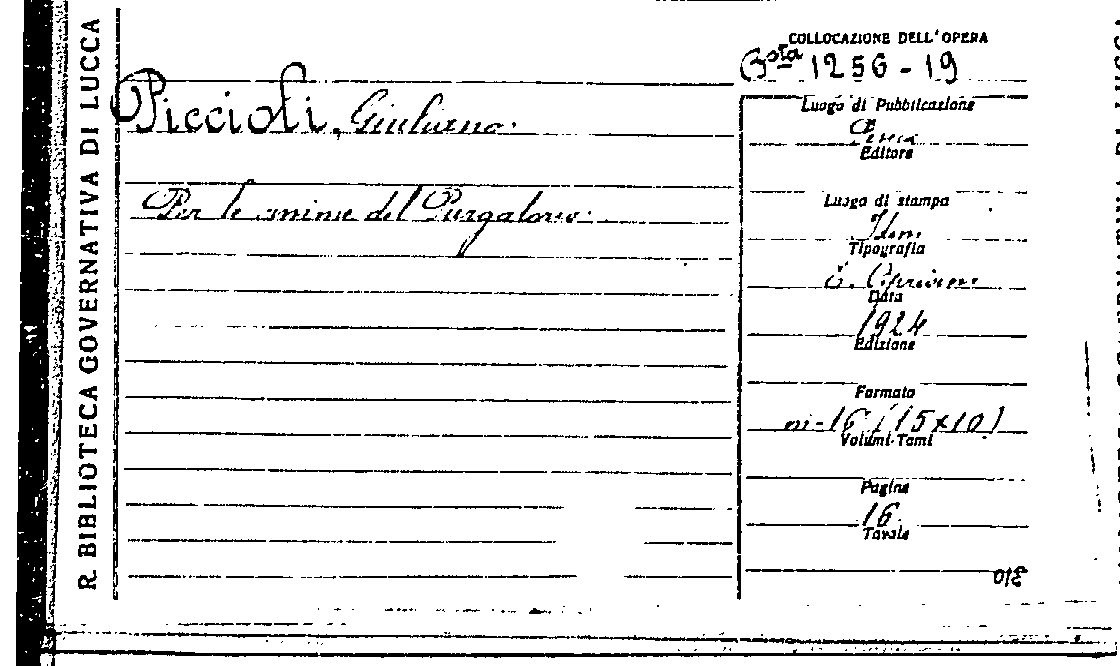 R. BIBLIOTECA GOVERNATIVA DI LUCCA
COLLOCAZIONE DELL'OPERA
Bsta 1256 - 19
Piccioli, Giuliano.
Per le anime del Purgatorio.
Luogo di Pubblicazione
Pescia
Editore
Luogo di stampa
Idem
Tipografia
E. Cipriani
Data
1924
Edizione
Formato
in-16 (15x10)
Volumi-Tomi
Pagine
16
Tavole